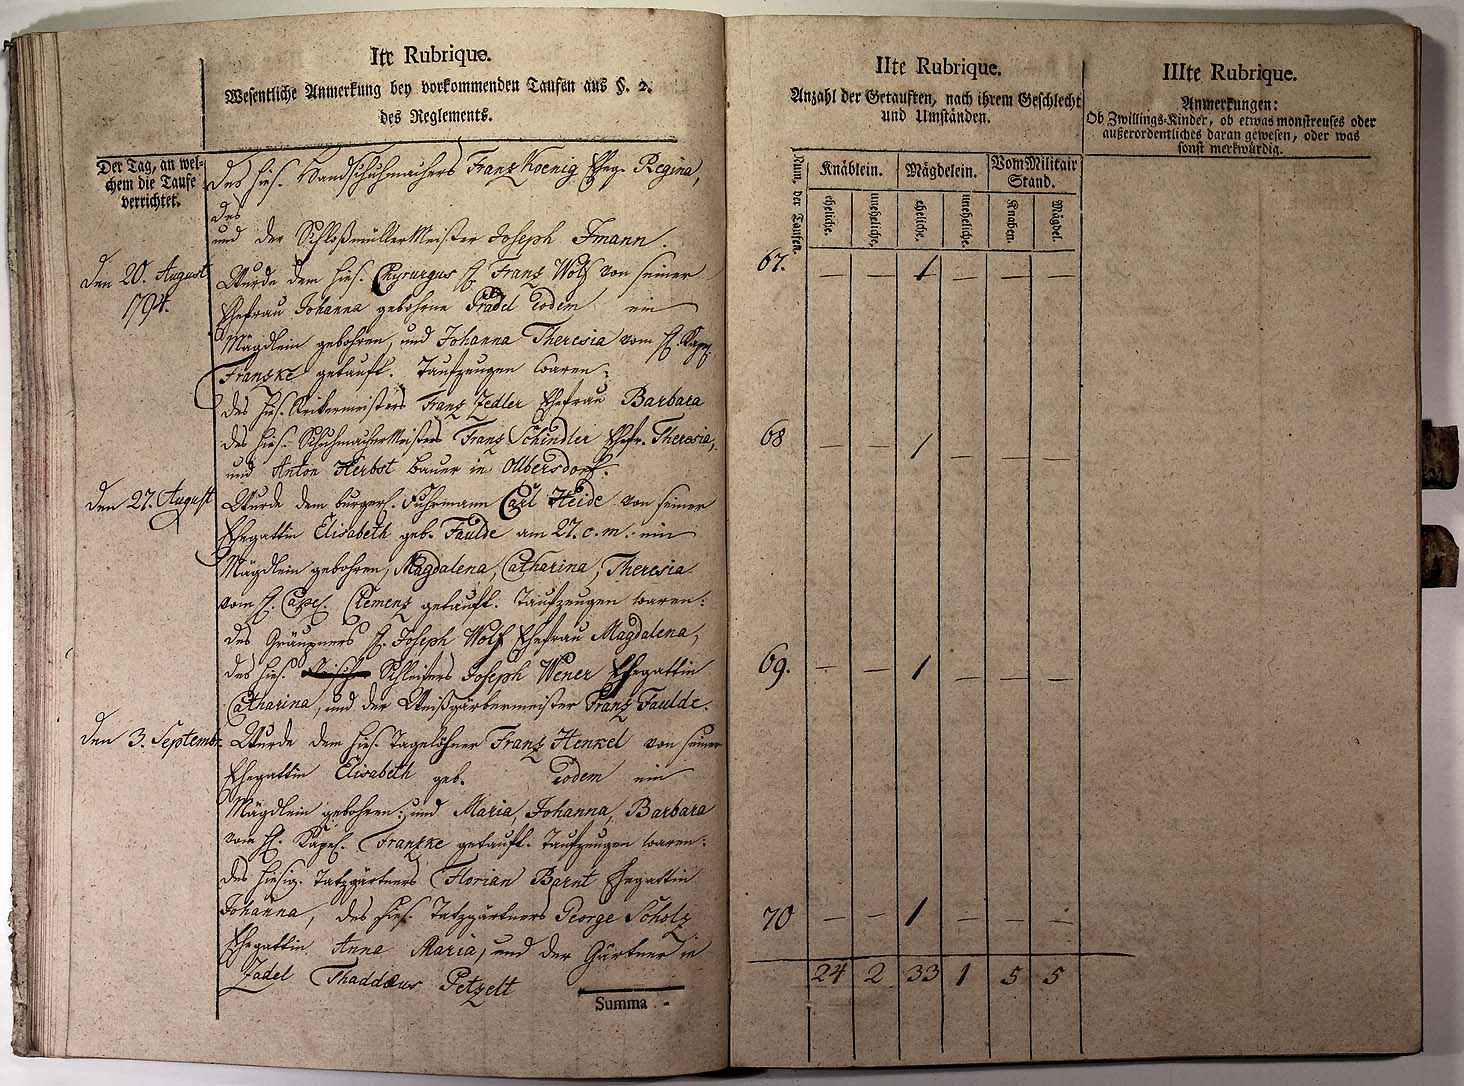 Ite Rubrique.
Wesentliche Anmerkung bey vorkommenden Taufen aus §. 2.
des Reglements.
Der Tag, an wel-
chem die Taufe
verrichtet.
des hies. Handschuhmachers Franz Koenig Eheg. Regina,
des
und der Schloßmüller Meister Joseph Imann.
den 20. August
1794.
Wurde dem hies. Chyrurgus H. Franz Wolf von seiner
Ehefrau Johanna gebohrne Pradel eodem ein
Mägdlein gebohren, und Johanna Theresia vom H. Kapl.
Franzke getauft. Taufzeugen waren:
des hies. Franz Zedler Ehefrau Barbara
des hies. Schuhmacher Meisters Franz Schindler Ehefr. Theresia,
und Anton Herbst Bauer in Olbersdorf.
den 27. August
Wurde dem burgerl. Fuhrmann Carl Heide von seiner
Ehegattin Elisabeth geb. Faulde am 27. c. m. ein
Mägdlein gebohren, Magdalena, Catharina, Theresia
vom H. Capl. Clemenz getauft. Taufzeugen waren:
des Gräupners H. Joseph Wolf Ehefrau Magdalena,
des hies. Schleifers Joseph Wener Ehegattin
Catharina, und der Weißgärbermeister Franz Faulde.
den 3. Septembr.
Wurde dem hies. Tagelöhner Franz Henkel von seiner
Ehegattin Elisabeth geb. eodem ein
Mägdlein gebohren: und Maria, Johanna, Barbara
vom H. Kapl. Franzke getauft. Taufzeugen waren:
des hiesig. Florian Barnt Ehegattin
Johanna, des hies. George Scholz
Ehegattin Anna Maria, und der Gärtner in
Zadel Thaddæus Petzelt
Summa
IIte Rubrique.
Anzahl der Getauften, nach ihrem Geschlecht
und Umständen.
Num. der Taufen.
Knäblein.
Mägdelein.
Vom Militair
Stand.
eheliche.
uneheliche.
eheliche.
uneheliche.
Knaben.
Mägdel.
67. — — 1 — — —
68 — — 1 — — —
69. — — 1 — — —
70 — — 1 — — —
24 2 33 1 5 5
IIIte Rubrique.
Anmerkungen:
Ob Zwillings-Kinder, ob etwas monstreuses oder
außerordentliches daran gewesen, oder was
sonst merkwürdig.